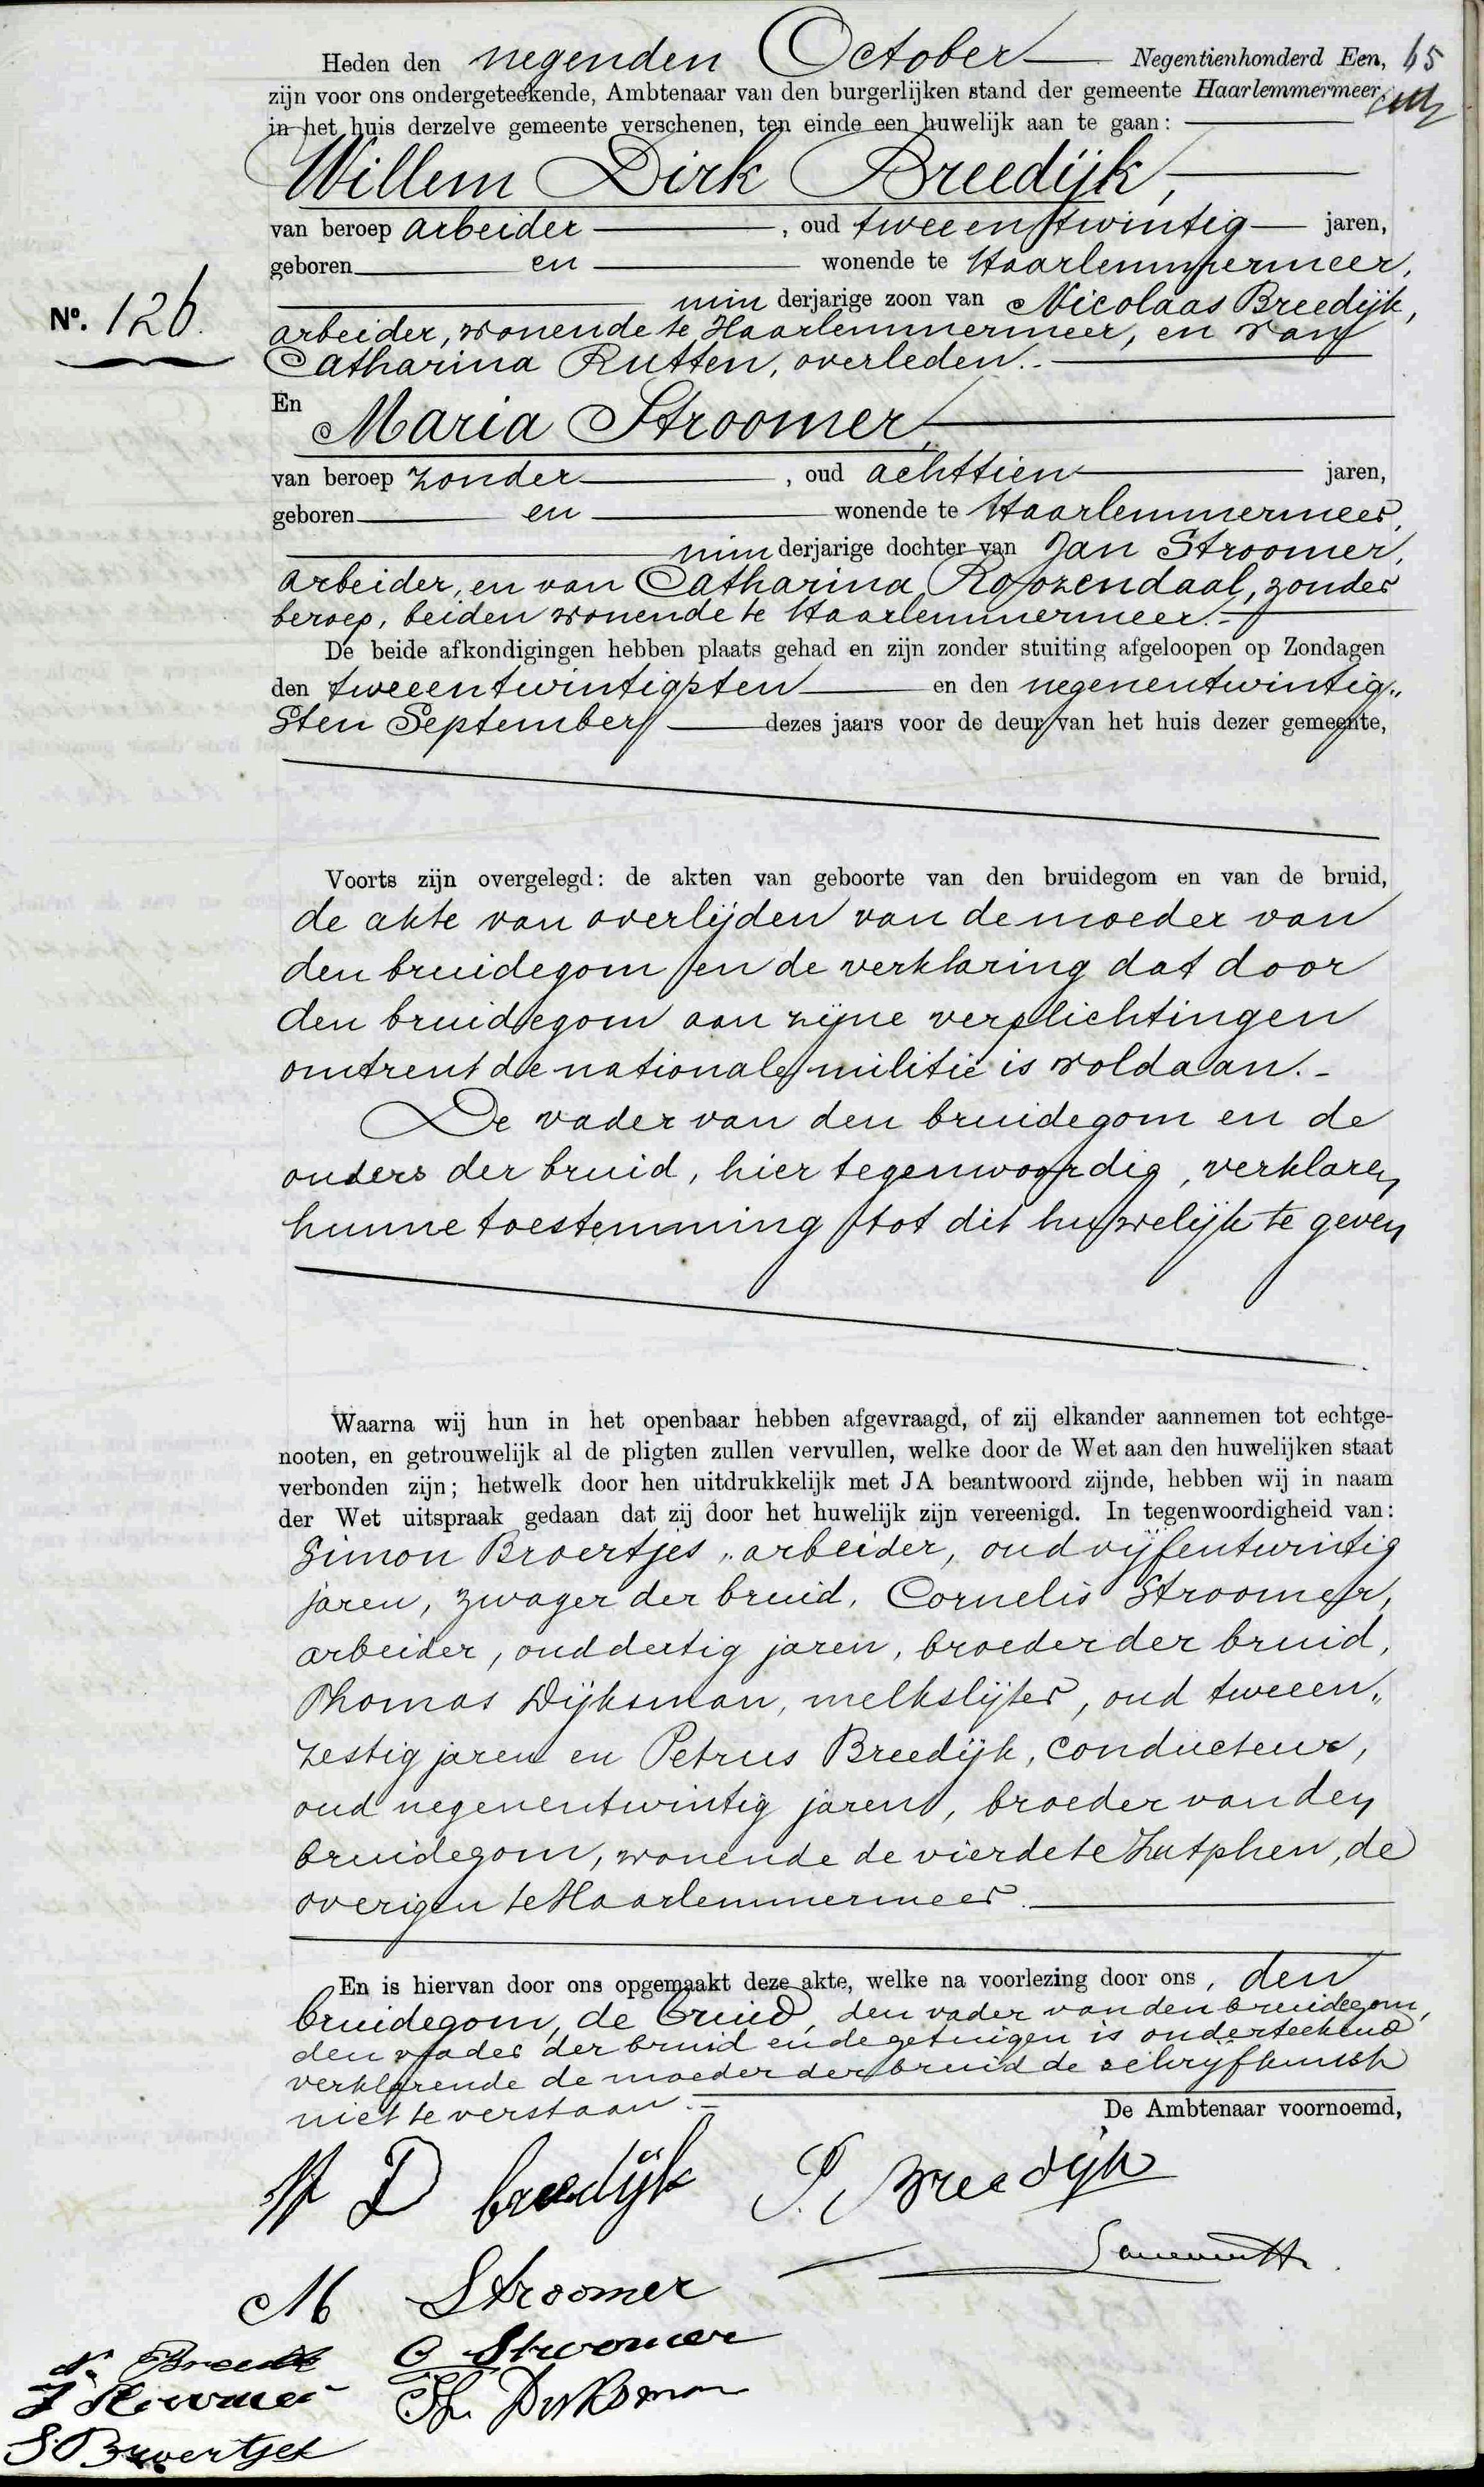 Heden den negenden October Negentienhonderd Een, 65
zijn voor ons ondergeteekende, Ambtenaar van den burgerlijken stand der gemeente Haarlemmermeer,
in het huis derzelve gemeente verschenen, ten einde een huwelijk aan te gaan:
Willem Dirk Breedijk,
van beroep arbeider, oud tweeentwintig jaren,
geboren en wonende te Haarlemmermeer,
min derjarige zoon van Nicolaas Breedijk,
No. 126.
arbeider, wonende te Haarlemmermeer, en van
Catharina Rutten, overleden.
En
Maria Stroomer,
van beroep zonder, oud achttien jaren,
geboren en wonende te Haarlemmermeer,
min derjarige dochter van Jan Stroomer,
arbeider, en van Catharina Roozendaal, zonder
beroep, beiden wonende te Haarlemmermeer.
De beide afkondigingen hebben plaats gehad en zijn zonder stuiting afgeloopen op Zondagen
den tweeentwintigsten en den negenentwintig„
sten September dezes jaars voor de deur van het huis dezer gemeente,
Voorts zijn overgelegd: de akten van geboorte van den bruidegom en van de bruid,
de akte van overlijden van de moeder van
den bruidegom en de verklaring dat door
den bruidegom aan zijne verplichtingen
omtrent de nationale militie is voldaan.
De vader van den bruidegom en de
ouders der bruid, hier tegenwoordig, verklaren
hunne toestemming tot dit huwelijk te geven
Waarna wij hun in het openbaar hebben afgevraagd, of zij elkander aannemen tot echtge-
nooten, en getrouwelijk al de pligten zullen vervullen, welke door de Wet aan den huwelijken staat
verbonden zijn; hetwelk door hen uitdrukkelijk met JA beantwoord zijnde, hebben wij in naam
der Wet uitspraak gedaan dat zij door het huwelijk zijn vereenigd. In tegenwoordigheid van:
Simon Broertjes, arbeider, oud vijfentwintig
jaren, zwager der bruid, Cornelis Stroomer,
arbeider, oud dertig jaren, broeder der bruid,
Thomas Dijksman, melkslijter, oud tweeen„
zestig jaren en Petrus Breedijk, conducteur,
oud negenentwintig jaren, broeder van den
bruidegom, wonende de vierde te Zutphen, de
overigen te Haarlemmermeer.
En is hiervan door ons opgemaakt deze akte, welke na voorlezing door ons, den
bruidegom, de bruid, den vader van den bruidegom,
den vader der bruid en de getuigen is onderteekend
verklarende de moeder der bruid de schrijfkunst
niet te verstaan.
De Ambtenaar voornoemd,
W D breedijk P. Breedijk
M Stroomer
N. Breedk C Stroomer
J Stroomer Th. Dijksman
S Broertjes